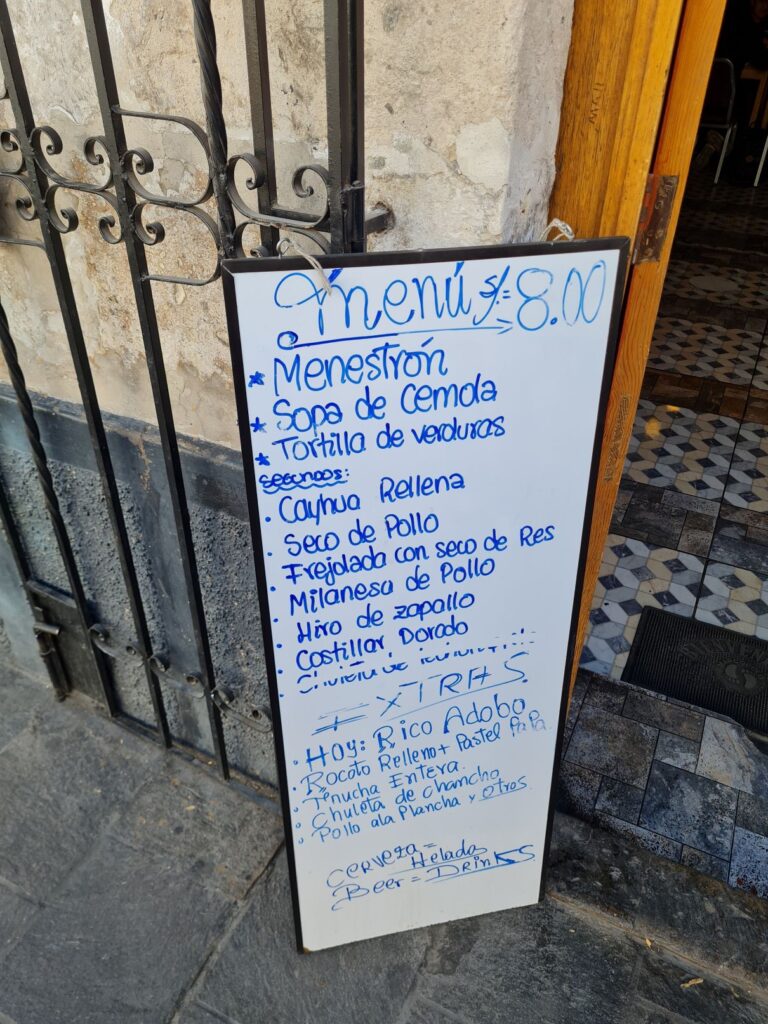 Menú S/= 8.00
* Menestrón
* Sopa de Cemola
* Tortilla de verduras
SEGUNDOS:
. Cayhua Rellena
. Seco de Pollo
. Frejolada con seco de Res
. Milanesa de Pollo
. Hiro de zapallo
. Costillar Dorado
. Chuleta de
EXTRAS.
. Hoy: Rico Adobo
. Rocoto Relleno + Pastel PaPa.
. Tenucha Entera.
. Chuleta de chancho
. Pollo ala Plancha y Otros.
Cerveza = Helada
Beer = DRINKS